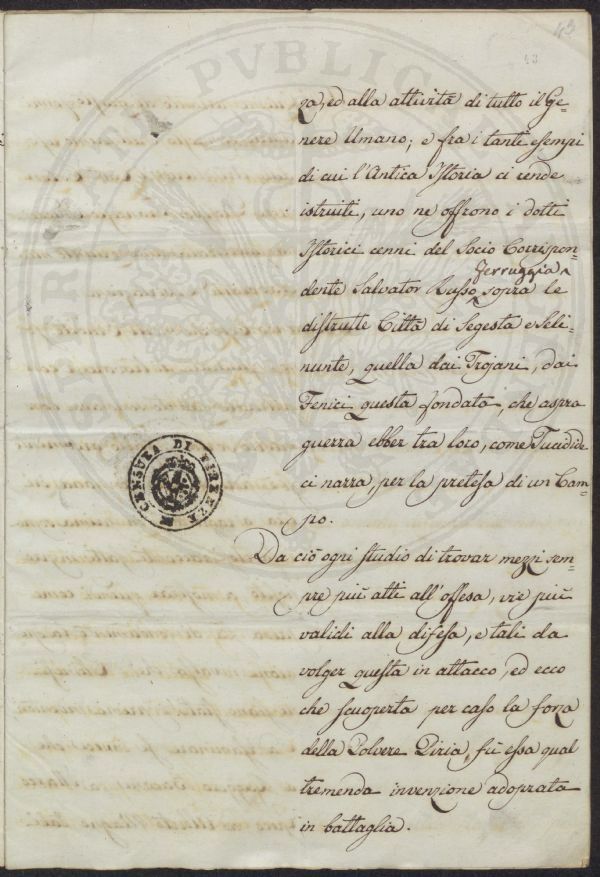 43
13
za, ed alla attività di tutto il Ge=
nere Umano; e fra i tanti esempi
di cui l'Antica Istoria ci rende
istruiti, uno ne offrono i dotti
Istorici cenni del Socio Corrispon=
Ferruggia
dente Salvator Russo sopra le
distrutte Città di Segesta e Seli=
nunte, quella dai Trojani, dai
Fenici questa fondata, che aspra
guerra ebber tra loro, come Tucidide
ci narra, per la pretesa di un Cam=
po.
CENSURA DI FIRENZE
Da ciò ogni studio di trovar mezzi sem=
pre più atti all'offesa, vie più
validi alla difesa, e tali da
volger questa in attacco, ed ecco
che scuoperta per caso la forza
della Polvere Piria, fù essa qual
tremenda invenzione adoprata
in battaglia.